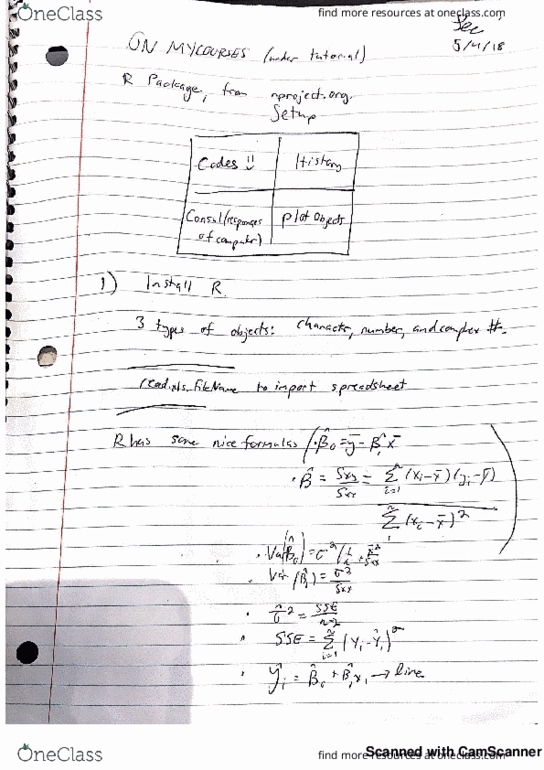 OneClass
find more resources at oneclass.com
Sec
5/4/18
ON MYCOURSES (under tutorial)
R Package, from rproject.org.
Setup
Codes !!
History
Consul (responses of computer)
Plot Objects
1) Install R.
3 types of objects: character, number, and complex #.
read.xls_fileName to import spreadsheet
R has some nice formulas ( · β̂₀ = ȳ - β̂₁x̄
· β̂ = Sxy/Sxx = Σⁿᵢ₌₁ (xᵢ-x̄)(yᵢ-ȳ)
Σⁿ₁ (xᵢ-x̄)²
· Var(β̂₀) = σ² (1/n + x̄²/Sxx
· Var (β̂₁) = σ²/Sxx
· σ̂² = SSE/n-2
· SSE = Σⁿᵢ₌₁ (Yᵢ-Ŷᵢ)²
· ŷᵢ = β̂₀ + β̂₁xᵢ → line
OneClass
find more resources at oneclass.com
Scanned with CamScanner